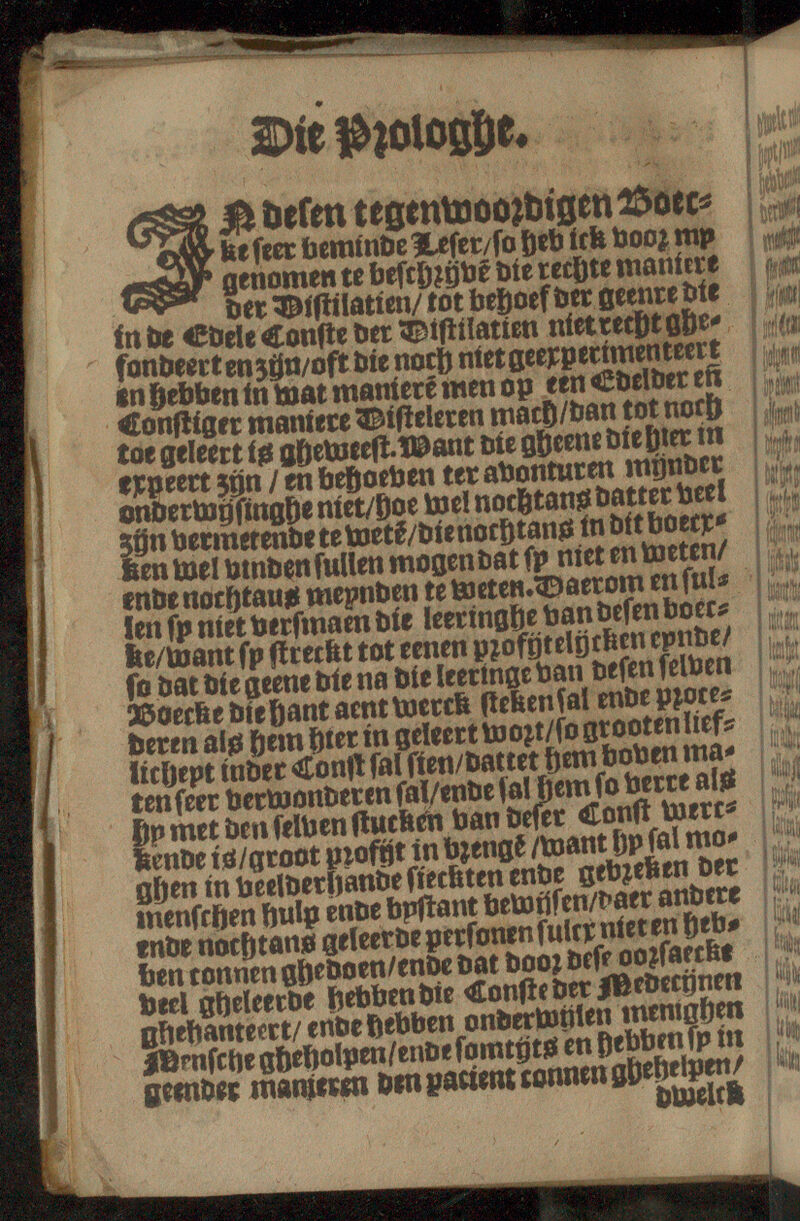 Die Prologhe.
IN desen tegenwoordigen Boec-
ke seer beminde Leser/so heb ick voor my
genomen te beschrijvē die rechte maniere
der Distilatien/ tot behoef der geenre die
in de Edele Conste der Distilatien niet recht ghe-
fondeert en zijn/oft die noch niet geexperimenteert
en hebben in wat manierē men op een Edelder eñ
Constiger maniere Disteleren mach/dan tot noch
toe geleert is gheweest. Want die gheene die hier in
expeert zijn / en behoeven ter avonturen mijnder
onderwijsinghe niet/hoe wel nochtans datter veel
zijn vermetende te wetē/die nochtans in dit boecx-
ken wel vinden sullen mogen dat sy niet en weten/
ende nochtaus meynden te weten. Daerom en sul-
len sy niet versmaen die leeringhe van desen boec-
ke/want sy streckt tot eenen profijtelijcken eynde/
so dat die geene die na die leeringe van desen selven
Boecke die hant aent werck steken sal ende proce-
deren als hem hier in geleert wort/so grooten lief-
licheyt inder Const sal sien/dattet hem boven ma-
ten seer verwonderen sal/ende sal hem so verre als
hy met den selven stucken van deser Const werc-
kende is/groot profijt in brengē /want hy sal mo-
ghen in veelderhande sieckten ende gebreken der
menschen hulp ende bystant bewijsen/daer andere
ende nochtans geleerde personen sulcx niet en heb-
ben connen ghedoen/ende dat door dese oorsaecke
veel gheleerde hebben die Conste der Medecijnen
ghehanteert/ ende hebben onderwijlen menighen
Mensche gheholpen/ende somtijts en hebben sy in
geender manieren den pacient connen ghehelpen/
dwelck